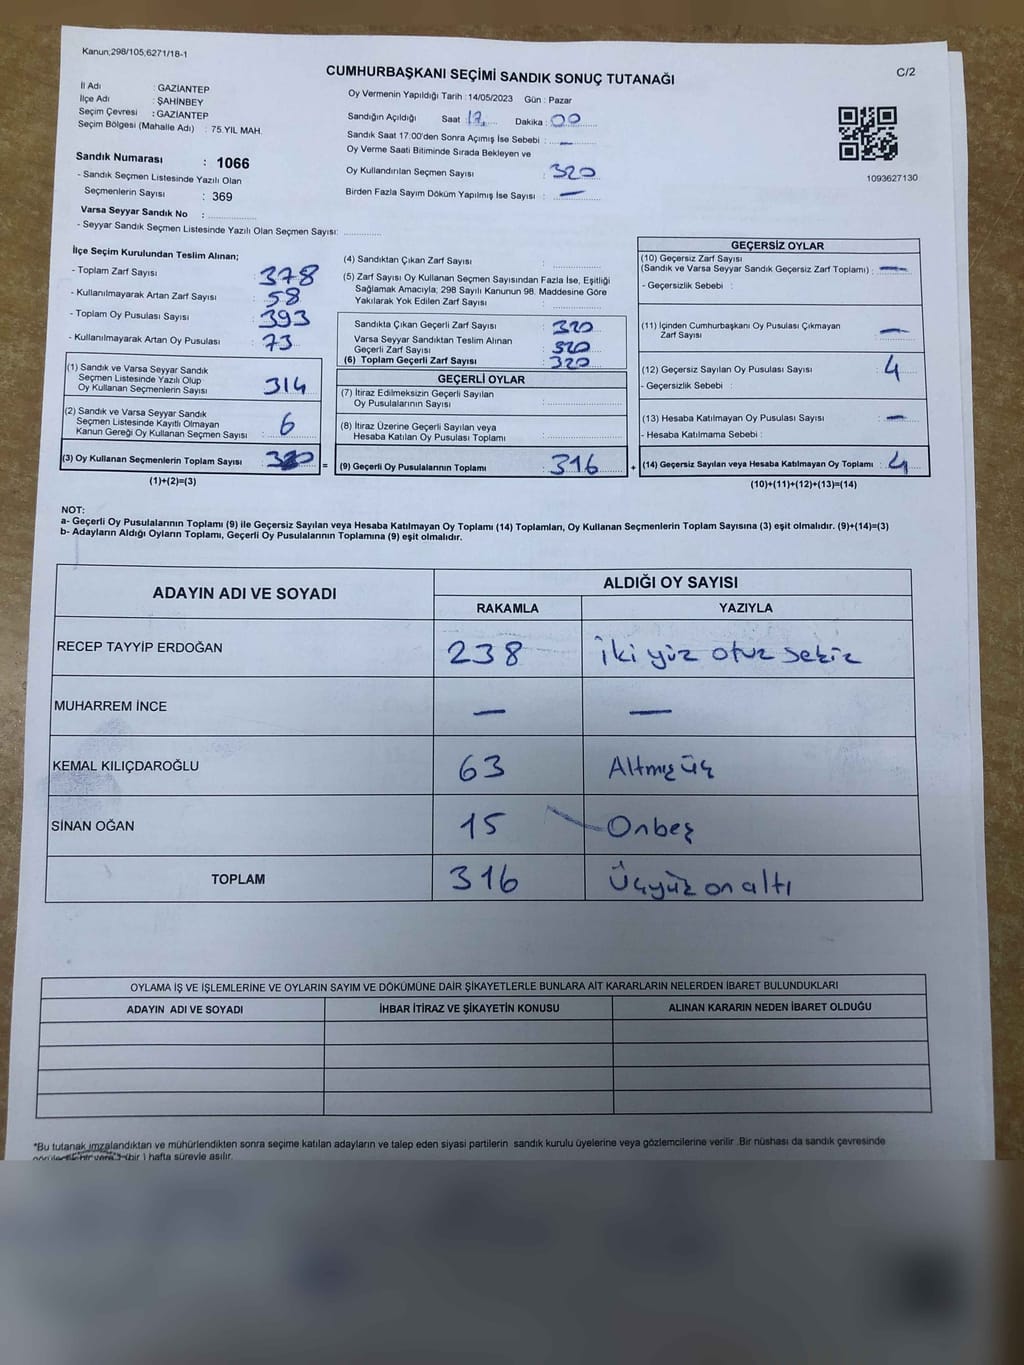 Kanun;298/105;6271/18-1
C/2
CUMHURBAŞKANI SEÇİMİ SANDIK SONUÇ TUTANAĞI
İl Adı : GAZİANTEP
İlçe Adı : ŞAHİNBEY
Seçim Çevresi : GAZİANTEP
Seçim Bölgesi (Mahalle Adı) : 75.YIL MAH.
Oy Vermenin Yapıldığı Tarih : 14/05/2023 Gün : Pazar
Sandığın Açıldığı Saat : 17 Dakika : 00
Sandık Saat 17:00'den Sonra Açımış İse Sebebi : —
Oy Verme Saati Bitiminde Sırada Bekleyen ve
Oy Kullandırılan Seçmen Sayısı : 320
Birden Fazla Sayım Döküm Yapılmış İse Sayısı : —
1093627130
Sandık Numarası : 1066
- Sandık Seçmen Listesinde Yazılı Olan
Seçmenlerin Sayısı : 369
Varsa Seyyar Sandık No :
- Seyyar Sandık Seçmen Listesinde Yazılı Olan Seçmen Sayısı:
İlçe Seçim Kurulundan Teslim Alınan;
- Toplam Zarf Sayısı : 378
- Kullanılmayarak Artan Zarf Sayısı : 58
- Toplam Oy Pusulası Sayısı : 393
- Kullanılmayarak Artan Oy Pusulası : 73
(1) Sandık ve Varsa Seyyar Sandık
Seçmen Listesinde Yazılı Olup
Oy Kullanan Seçmenlerin Sayısı : 314
(2) Sandık ve Varsa Seyyar Sandık
Seçmen Listesinde Kayıtlı Olmayan
Kanun Gereği Oy Kullanan Seçmen Sayısı : 6
(3) Oy Kullanan Seçmenlerin Toplam Sayısı : 320 =
(1)+(2)=(3)
(4) Sandıktan Çıkan Zarf Sayısı :
(5) Zarf Sayısı Oy Kullanan Seçmen Sayısından Fazla İse, Eşitliği
Sağlamak Amacıyla; 298 Sayılı Kanunun 98. Maddesine Göre
Yakılarak Yok Edilen Zarf Sayısı :
Sandıkta Çıkan Geçerli Zarf Sayısı : 320
Varsa Seyyar Sandıktan Teslim Alınan
Geçerli Zarf Sayısı : 320
(6) Toplam Geçerli Zarf Sayısı : 320
GEÇERLİ OYLAR
(7) İtiraz Edilmeksizin Geçerli Sayılan
Oy Pusulalarının Sayısı :
(8) İtiraz Üzerine Geçerli Sayılan veya
Hesaba Katılan Oy Pusulası Toplamı :
(9) Geçerli Oy Pusulalarının Toplamı : 316 +
GEÇERSİZ OYLAR
(10) Geçersiz Zarf Sayısı
(Sandık ve Varsa Seyyar Sandık Geçersiz Zarf Toplamı) : —
- Geçersizlik Sebebi :
(11) İçinden Cumhurbaşkanı Oy Pusulası Çıkmayan
Zarf Sayısı : —
(12) Geçersiz Sayılan Oy Pusulası Sayısı : 4
- Geçersizlik Sebebi :
(13) Hesaba Katılmayan Oy Pusulası Sayısı : —
- Hesaba Katılmama Sebebi :
(14) Geçersiz Sayılan veya Hesaba Katılmayan Oy Toplamı : 4
(10)+(11)+(12)+(13)=(14)
NOT:
a- Geçerli Oy Pusulalarının Toplamı (9) ile Geçersiz Sayılan veya Hesaba Katılmayan Oy Toplamı (14) Toplamları, Oy Kullanan Seçmenlerin Toplam Sayısına (3) eşit olmalıdır. (9)+(14)=(3)
b- Adayların Aldığı Oyların Toplamı, Geçerli Oy Pusulalarının Toplamına (9) eşit olmalıdır.
ADAYIN ADI VE SOYADI
ALDIĞI OY SAYISI
RAKAMLA YAZIYLA
RECEP TAYYİP ERDOĞAN 238 İki yüz otuz sekiz
MUHARREM İNCE — —
KEMAL KILIÇDAROĞLU 63 Altmış üç
SİNAN OĞAN 15 Onbeş
TOPLAM 316 Üçyüz on altı
OYLAMA İŞ VE İŞLEMLERİNE VE OYLARIN SAYIM VE DÖKÜMÜNE DAİR ŞİKAYETLERLE BUNLARA AİT KARARLARIN NELERDEN İBARET BULUNDUKLARI
ADAYIN ADI VE SOYADI İHBAR İTİRAZ VE ŞİKAYETİN KONUSU ALINAN KARARIN NEDEN İBARET OLDUĞU
*Bu tutanak imzalandıktan ve mühürlendikten sonra seçime katılan adayların ve talep eden siyasi partilerin sandık kurulu üyelerine veya gözlemcilerine verilir .Bir nüshası da sandık çevresinde
(bir ) hafta süreyle asılır.